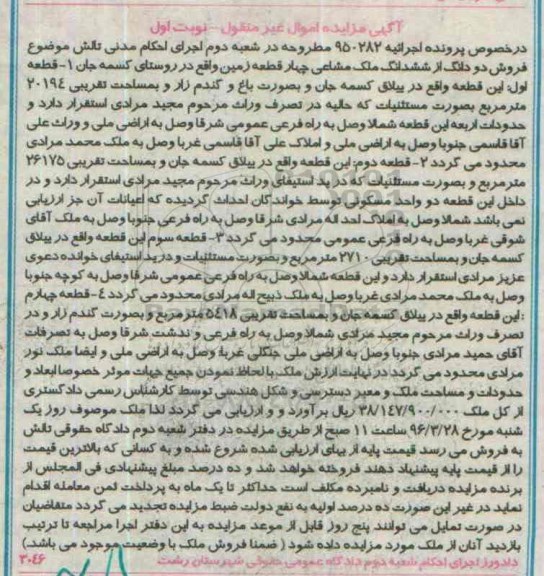 آگهی مزایده اموال غیر منقول - نوبت اول
درخصوص پرونده اجرائیه ۹۵۰۲۸۲ مطروحه در شعبه دوم اجرای احکام مدنی تالش موضوع
فروش دو دانگ از ششدانگ ملک مشاعی چهار قطعه زمین واقع در روستای کسمه جان ۱- قطعه
اول: این قطعه واقع در ییلاق کسمه جان و بصورت باغ و گندم زار و بمساحت تقریبی ۲۰۱۹٤
مترمربع بصورت مستثنیات که حالیه در تصرف وراث مرحوم مجید مرادی استقرار دارد و
حدودات اربعه این قطعه شمالا وصل به راه فرعی عمومی شرقا وصل به اراضی ملی و وراث علی
آقا قاسمی جنوبا وصل به اراضی ملی و املاک علی آقا قاسمی غربا وصل به ملک محمد مرادی
محدود می گردد ۲- قطعه دوم: این قطعه واقع در ییلاق کسمه جان و بمساحت تقریبی ۲۶۱۷۵
مترمربع و بصورت مستثنیات که در ید استیفای وراث مرحوم مجید مرادی استقرار دارد و در
داخل این قطعه دو واحد مسکونی توسط خواندگان احداث گردیده که اعیانات آن جز ارزیابی
نمی باشد شمالا وصل به املاک احد اله مرادی شرقا وصل به راه فرعی جنوبا وصل به ملک آقای
شوقی غربا وصل به راه فرعی عمومی محدود می گردد ۳- قطعه سوم این قطعه واقع در ییلاق
کسمه جان و بمساحت تقریبی ۲۷۱۰ مترمربع و بصورت مستثنیات و در ید استیفای خوانده دعوی
عزیز مرادی استقرار دارد و این قطعه شمالا وصل به راه فرعی عمومی شرقا وصل به کوچه جنوبا
وصل به ملک محمد مرادی غربا وصل به ملک ذبیح اله مرادی محدود می گردد ٤- قطعه چهارم
: این قطعه واقع در ییلاق کسمه جان و بمساحت تقریبی ۵٤۱۸ مترمربع و بصورت گندم زار و در
تصرف وراث مرحوم مجید مرادی شمالا وصل به راه فرعی و ندشت شرقا وصل به تصرفات
آقای حمید مرادی جنوبا وصل به اراضی ملی جنگلی غربا وصل به اراضی ملی و ایضا ملک نور
مرادی محدود می گردد در نهایت ارزش ملک با لحاظ نمودن جمیع جهات موثر خصوصا ابعاد و
حدودات و مساحت ملک و معبر دسترسی و شکل هندسی توسط کارشناس رسمی دادگستری
از کل ملک ۳۸/۱٤۷/۹۰۰/۰۰۰ ریال برآورد و و ارزیابی می گردد لذا ملک موصوف روز یک
شنبه مورخ ۹۶/۳/۲۸ ساعت ۱۱ صبح از طریق مزایده در دفتر شعبه دوم دادگاه حقوقی تالش
به فروش می رسد قیمت پایه از بهای ارزیابی شده شروع شده و به کسانی که بالاترین قیمت
را از قیمت پایه پیشنهاد دهند فروخته خواهد شد و ده درصد مبلغ پیشنهادی فی المجلس از
برنده مزایده دریافت و نامبرده مکلف است حداکثر تا یک ماه به پرداخت ثمن معامله اقدام
نماید در غیر این صورت ده درصد اولیه به نفع دولت ضبط مزایده تجدید می گردد متقاضیان
در صورت تمایل می توانند پنج روز قبل از موعد مزایده به این دفتر اجرا مراجعه تا ترتیب
بازدید آنان از ملک مورد مزایده داده شود ( ضمنا فروش ملک با وضعیت موجود می باشد.)
دادورز اجرای احکام شعبه دوم دادگاه عمومی حقوقی شهرستان رشت
۳۰٤۶